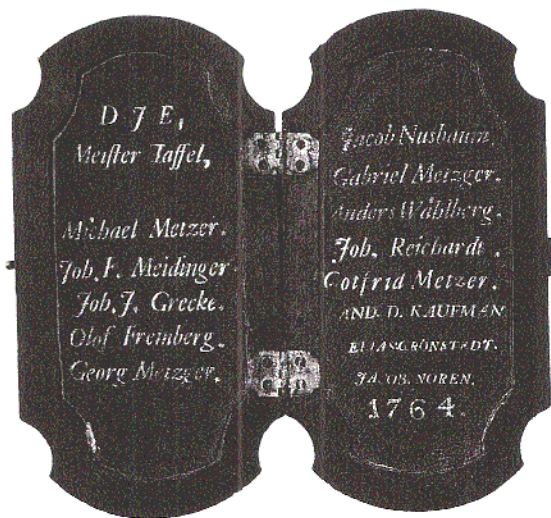 D J E,
Meister Taffel,
Michael Metzer.
Joh. F. Meidinger
Joh. J. Grecke.
Olof Fremberg.
Georg Metzger.
Jacob Nusbaum.
Gabriel Metzger.
Anders Wåhlberg.
Joh. Reichardt.
Gotfrid Metzer.
AND. D. KAUFMAN
ELIAS GRÖNSTEDT.
JACOB. NOREN.
1764.